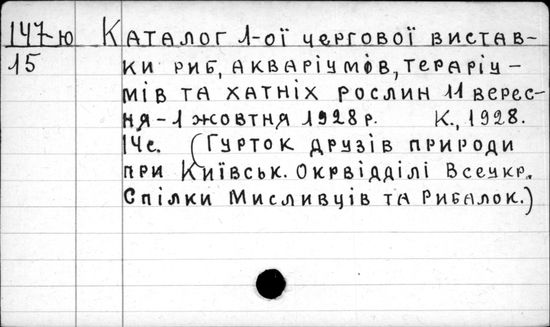 147-ю Каталог 1-ої чергової вистав-
15 ки риб, акваріумів, тераріу-
мів та хатніх рослин 11 верес-
ня - 1 жовтня 1928 р. К., 1928.
14с. (Гурток друзів природи
при Київськ. Окрвідділі Всеукр.
Спілки Мисливців та Рибалок.)